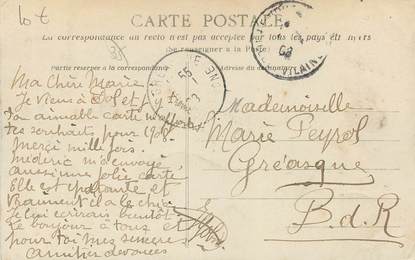 lot
CARTE POSTALE
La correspondance au recto n'est pas acceptée par tous les pays étrangers
(Se renseigner à la Poste)
Partie réservée à la correspondance
Adresse du destinataire
Ma chère Marie
Je viens à Dol et j'y
ta aimable carte
tes souhaits pour 1908
Merci mille fois.
médéric m'a envoyé
aussi une jolie carte
Elle est épatante et
vraiment il a le chic
Je lui écrirai bientôt
Le bonjour à tous et
pour toi mes sincères
amitiés dévouées
Mademoiselle
Marie Peyrol
Gréasque
B. d. R
VILAINE